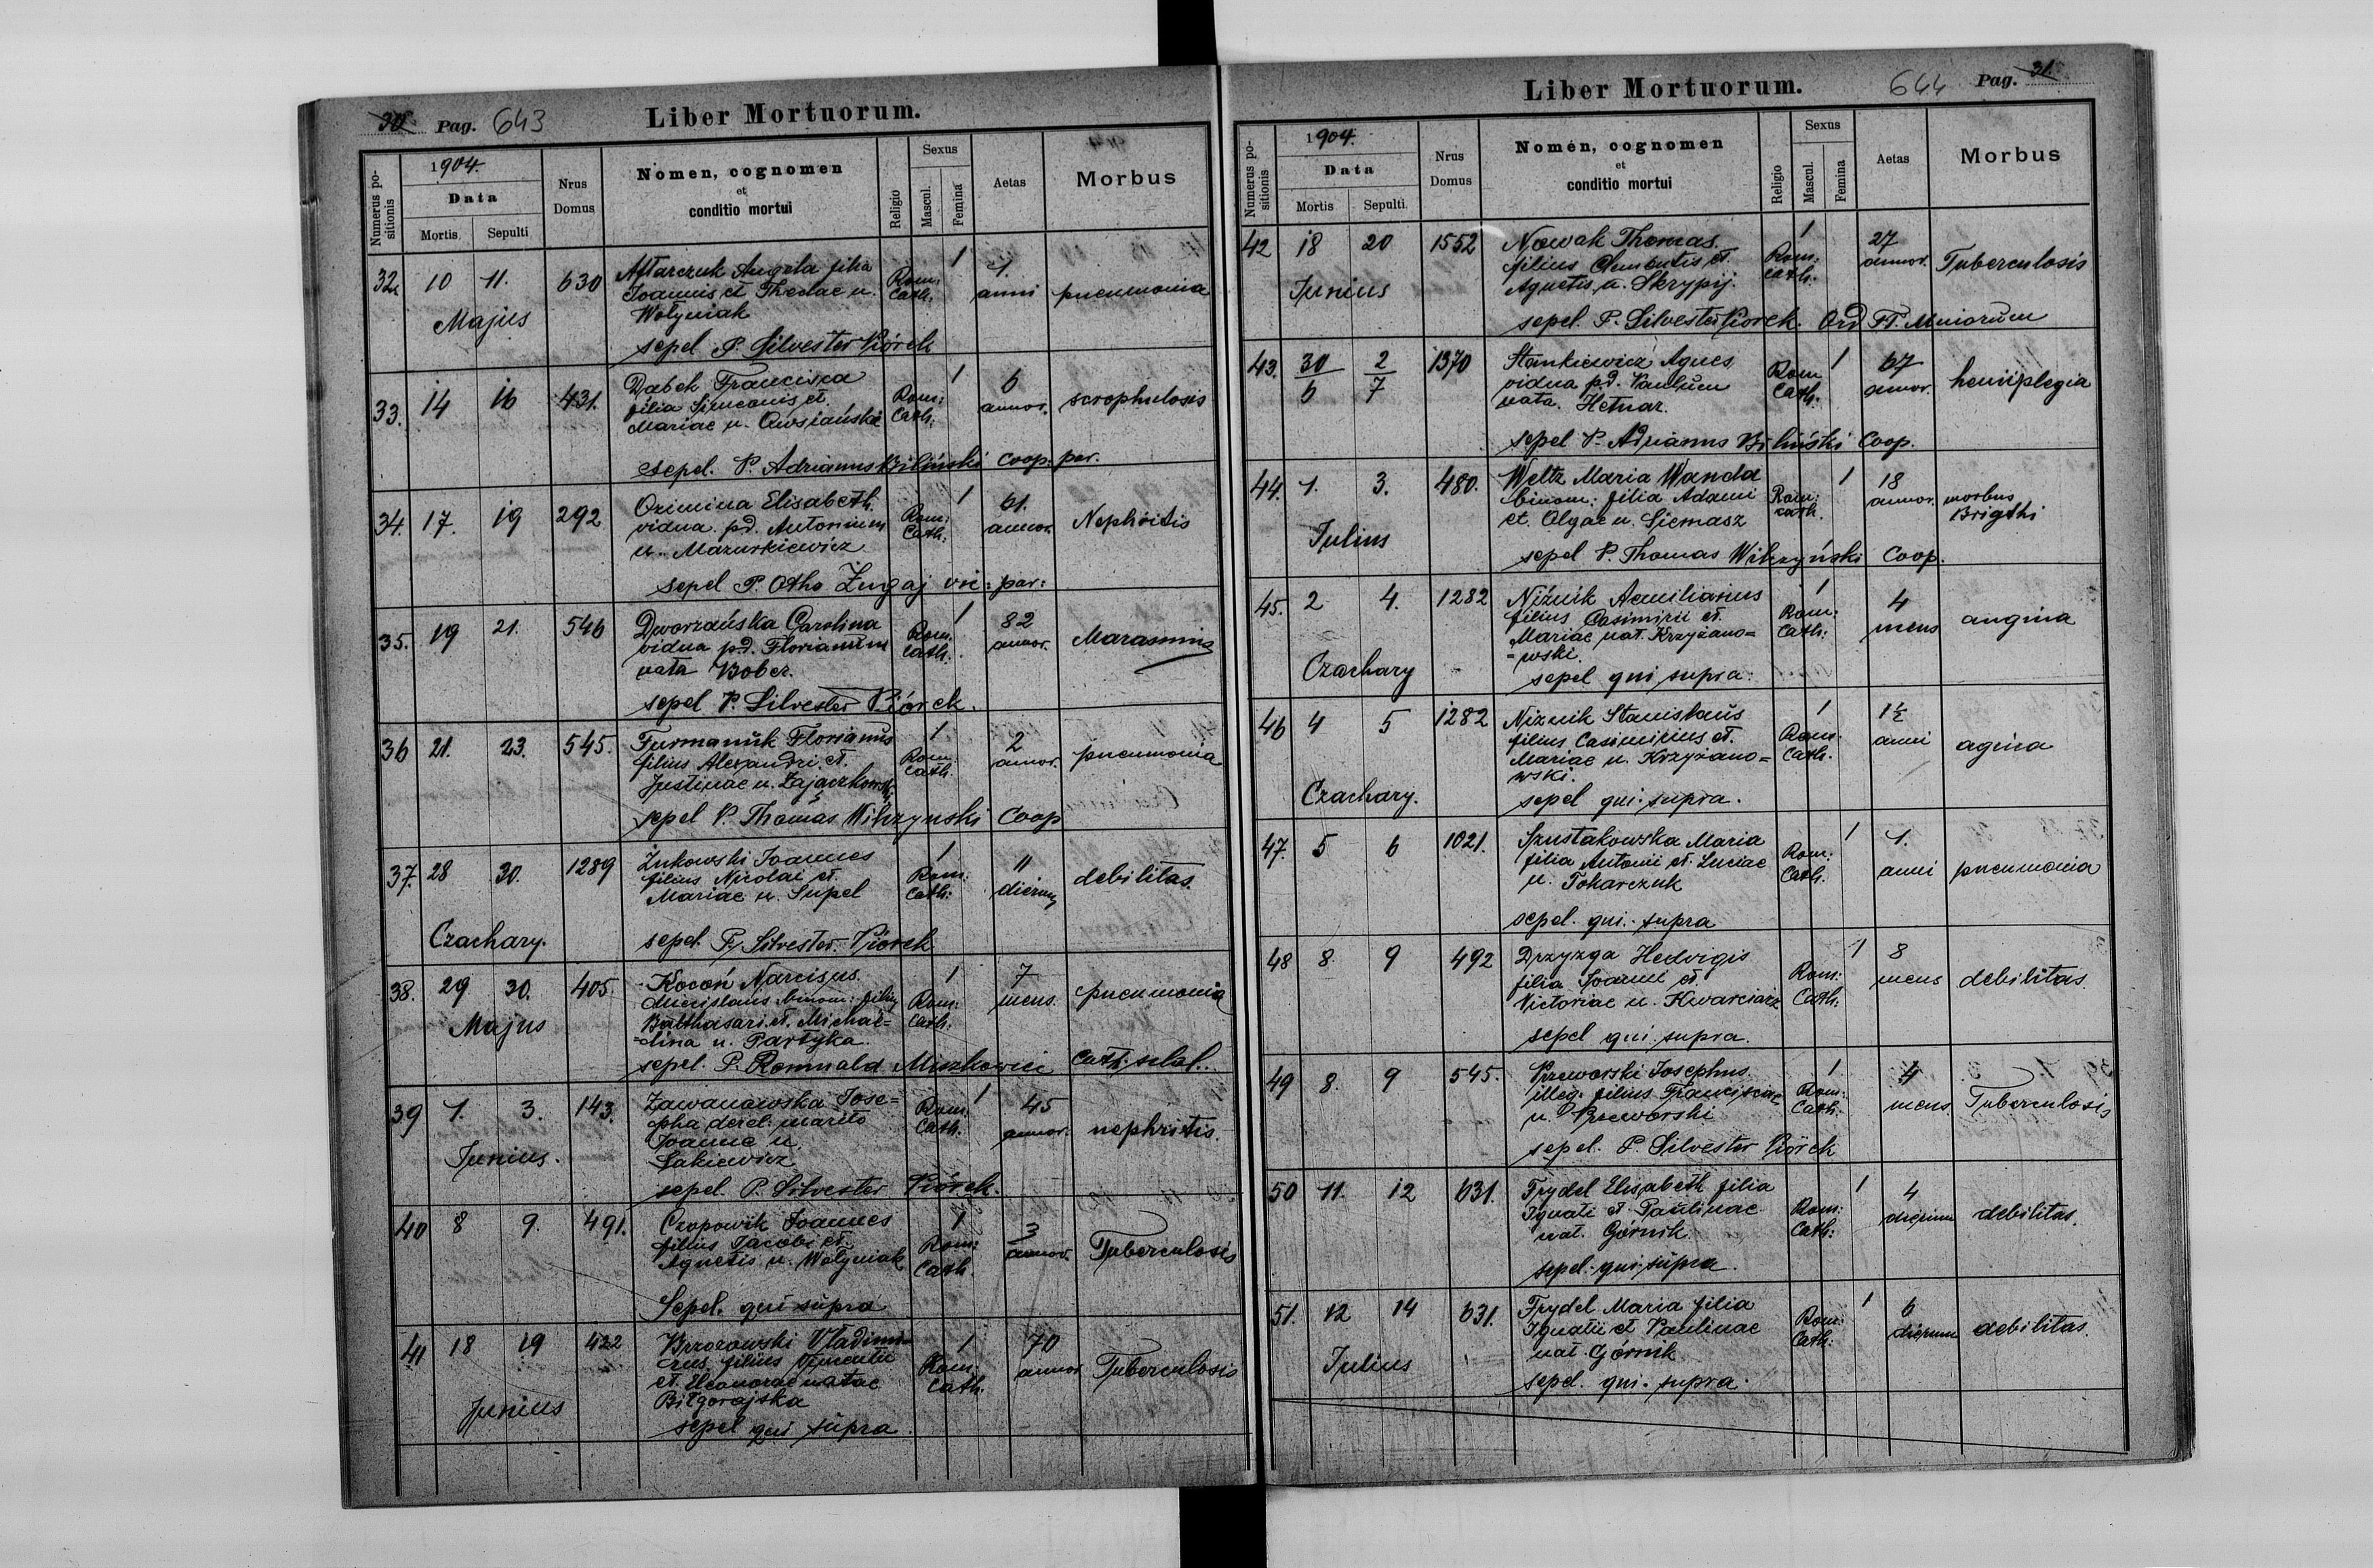 30 Pag. 643 Liber Mortuorum.
Numerus positionis
1904.
Data
Mortis Sepulti
Nrus Domus
Nomen, cognomen
et
conditio mortui
Religio
Sexus
Mascul. Femina
Aetas
Morbus
32 10 11. 630 Aftarczuk Angela filia Rom: 1 1. pneumonia
Joannis et Theclae n. Cath: anni
Majus Wołyniak
sepel P. Silvester Piórek
33. 14 16 431. Dąbek Francisca Rom: 1 6 scrophulosis
filia Simeonis et. Cath: annor.
Mariae n. Owsiańska
sepel. P. Adrianus Biliński coop. par.
34. 17. 19 292 Orimina Elisabeth. Rom: 1 61. Nephritis
vidua pd. Antonium Cath: annor.
n. Mazurkiewicz
sepel P. Otho Żugaj vic: par:
35. 19 21. 546 Dworzańska Carolina Rom. 1 82 Marasmus
vidua pd. Florianum Cath. annor.
nata Bober.
sepel P. Silvester Piórek.
36 21. 23. 545. Furmaniuk Florianus 1 2 pneumonia
filius Alexandri et. Rom: Cath. annor.
Justinae n. Zajączkowski
sepel P. Thomas Wilczynski Coop
37. 28 30. 1289 Żukowski Joannes 1 11 debilitas.
filius Nicolai et. Rom: dierum
Mariae n. Supel Cath:
Czachary. sepel. P. Silvester Piorek
38. 29 30. 405. Kocoń Narcisus. 1 7 pneumonia
Miecislaus binom: filius Rom: mens.
Majus Balthasari et. Michae= Cath:
=lina n. Partyka.
sepel. P. Romuald Miszkowicz Cath. schol.
39 1. 3. 143. Zawanowska Jose= Rom: 1 45 nephritis.
pha derel. marito Cath. annor.
Junius. Joanne n
Sakiewicz
sepel. P. Silvester Piórek.
40 8 9. 491. Czopowik Joannes 1 3 Tuberculosis
filius Jacobi et. Rom: annor.
Agnetis n. Wołyniak Cath.
Sepel. qui supra
41 18 19 422 Brzozowski Vladimi= 1 70 Tuberculosis
rus filius et. Eleonorae natae Rom: Cath. annor
Biłgorajska
Junius sepel qui supra.
Liber Mortuorum. 644 Pag. 31.
Numerus positionis
1904.
Data
Mortis Sepulti
Nrus Domus
Nomen, cognomen
et
conditio mortui
Religio
Sexus
Mascul. Femina
Aetas
Morbus
42 18 20 1552 Nowak Thomas. 1 27 Tuberculosis
filius Clementis et. Rom: annor.
Junius Agnetis n. Skrypij. Cath.
sepel. P. Silvester Piorek. Ord. FF. Miniorum
43. 30/6 2/7 1370 Stankiewicz Agnes Rom 1 67 hemiplegia
vidua p.d. Paulum Cath. annor.
nata. Hetnar.
sepel P. Adrianus Biliński Coop.
44. 1. 3. 480. Weltz Maria Wanda 1 18 morbus
binom: filia Adami Rom: annor. Brigthi
Julius et. Olgae n. Siemasz cath.
sepel P. Thomas Wilczyński Coop.
45. 2 4. 1282 Niźnik Aemilianus 1 4 angina
filius Casimirii et. Rom: mens
Mariae nat. Krzyżano= Cath:
=wski.
Czachary sepel qui supra.
46 4 5 1282 Niznik Stanislaus 1 1½ agina
filius Casimirius et. Rom: anni
Mariae n. Krzyżano= Cath.
wski.
Czachary. sepel qui supra.
47. 5 6 1021. Szustakowska Maria 1 1. pneumonia
filia Antonii et. Luciae Rom: anni
n. Tokarczuk Cath.
sepel. qui. supra
48 8. 9 492 Drzyzga Hedvigis 1 8 debilitas.
filia Joanni et. Rom: mens
Victoriae n. Kwarciarz Cath:
sepel qui supra.
49 8. 9 545. Przeworski Josephus. 1 4 Tuberculosis
illeg. filius Franciscae Rom: mens.
n. Przeworski Cath:
sepel. P. Silvester Piórek
50 11. 12 631. Frydel Elisabeth filia 1 4 debilitas.
Ignati et Paulinae Rom: dierum
nat. Górnik. Cath:
sepel. qui supra.
51. 12 14 631. Frydel Maria filia Rom: 1 6 debilitas.
Ignatii et Paulinae Cath: dierum
Julius nat. Górnik
sepel. qui. supra.